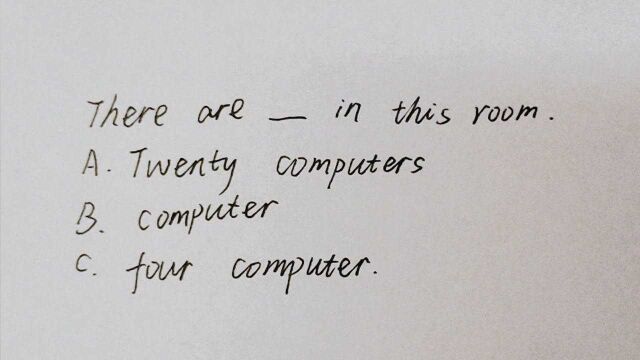 There are __ in this room.
A. Twenty computers
B. computer
C. four computer.